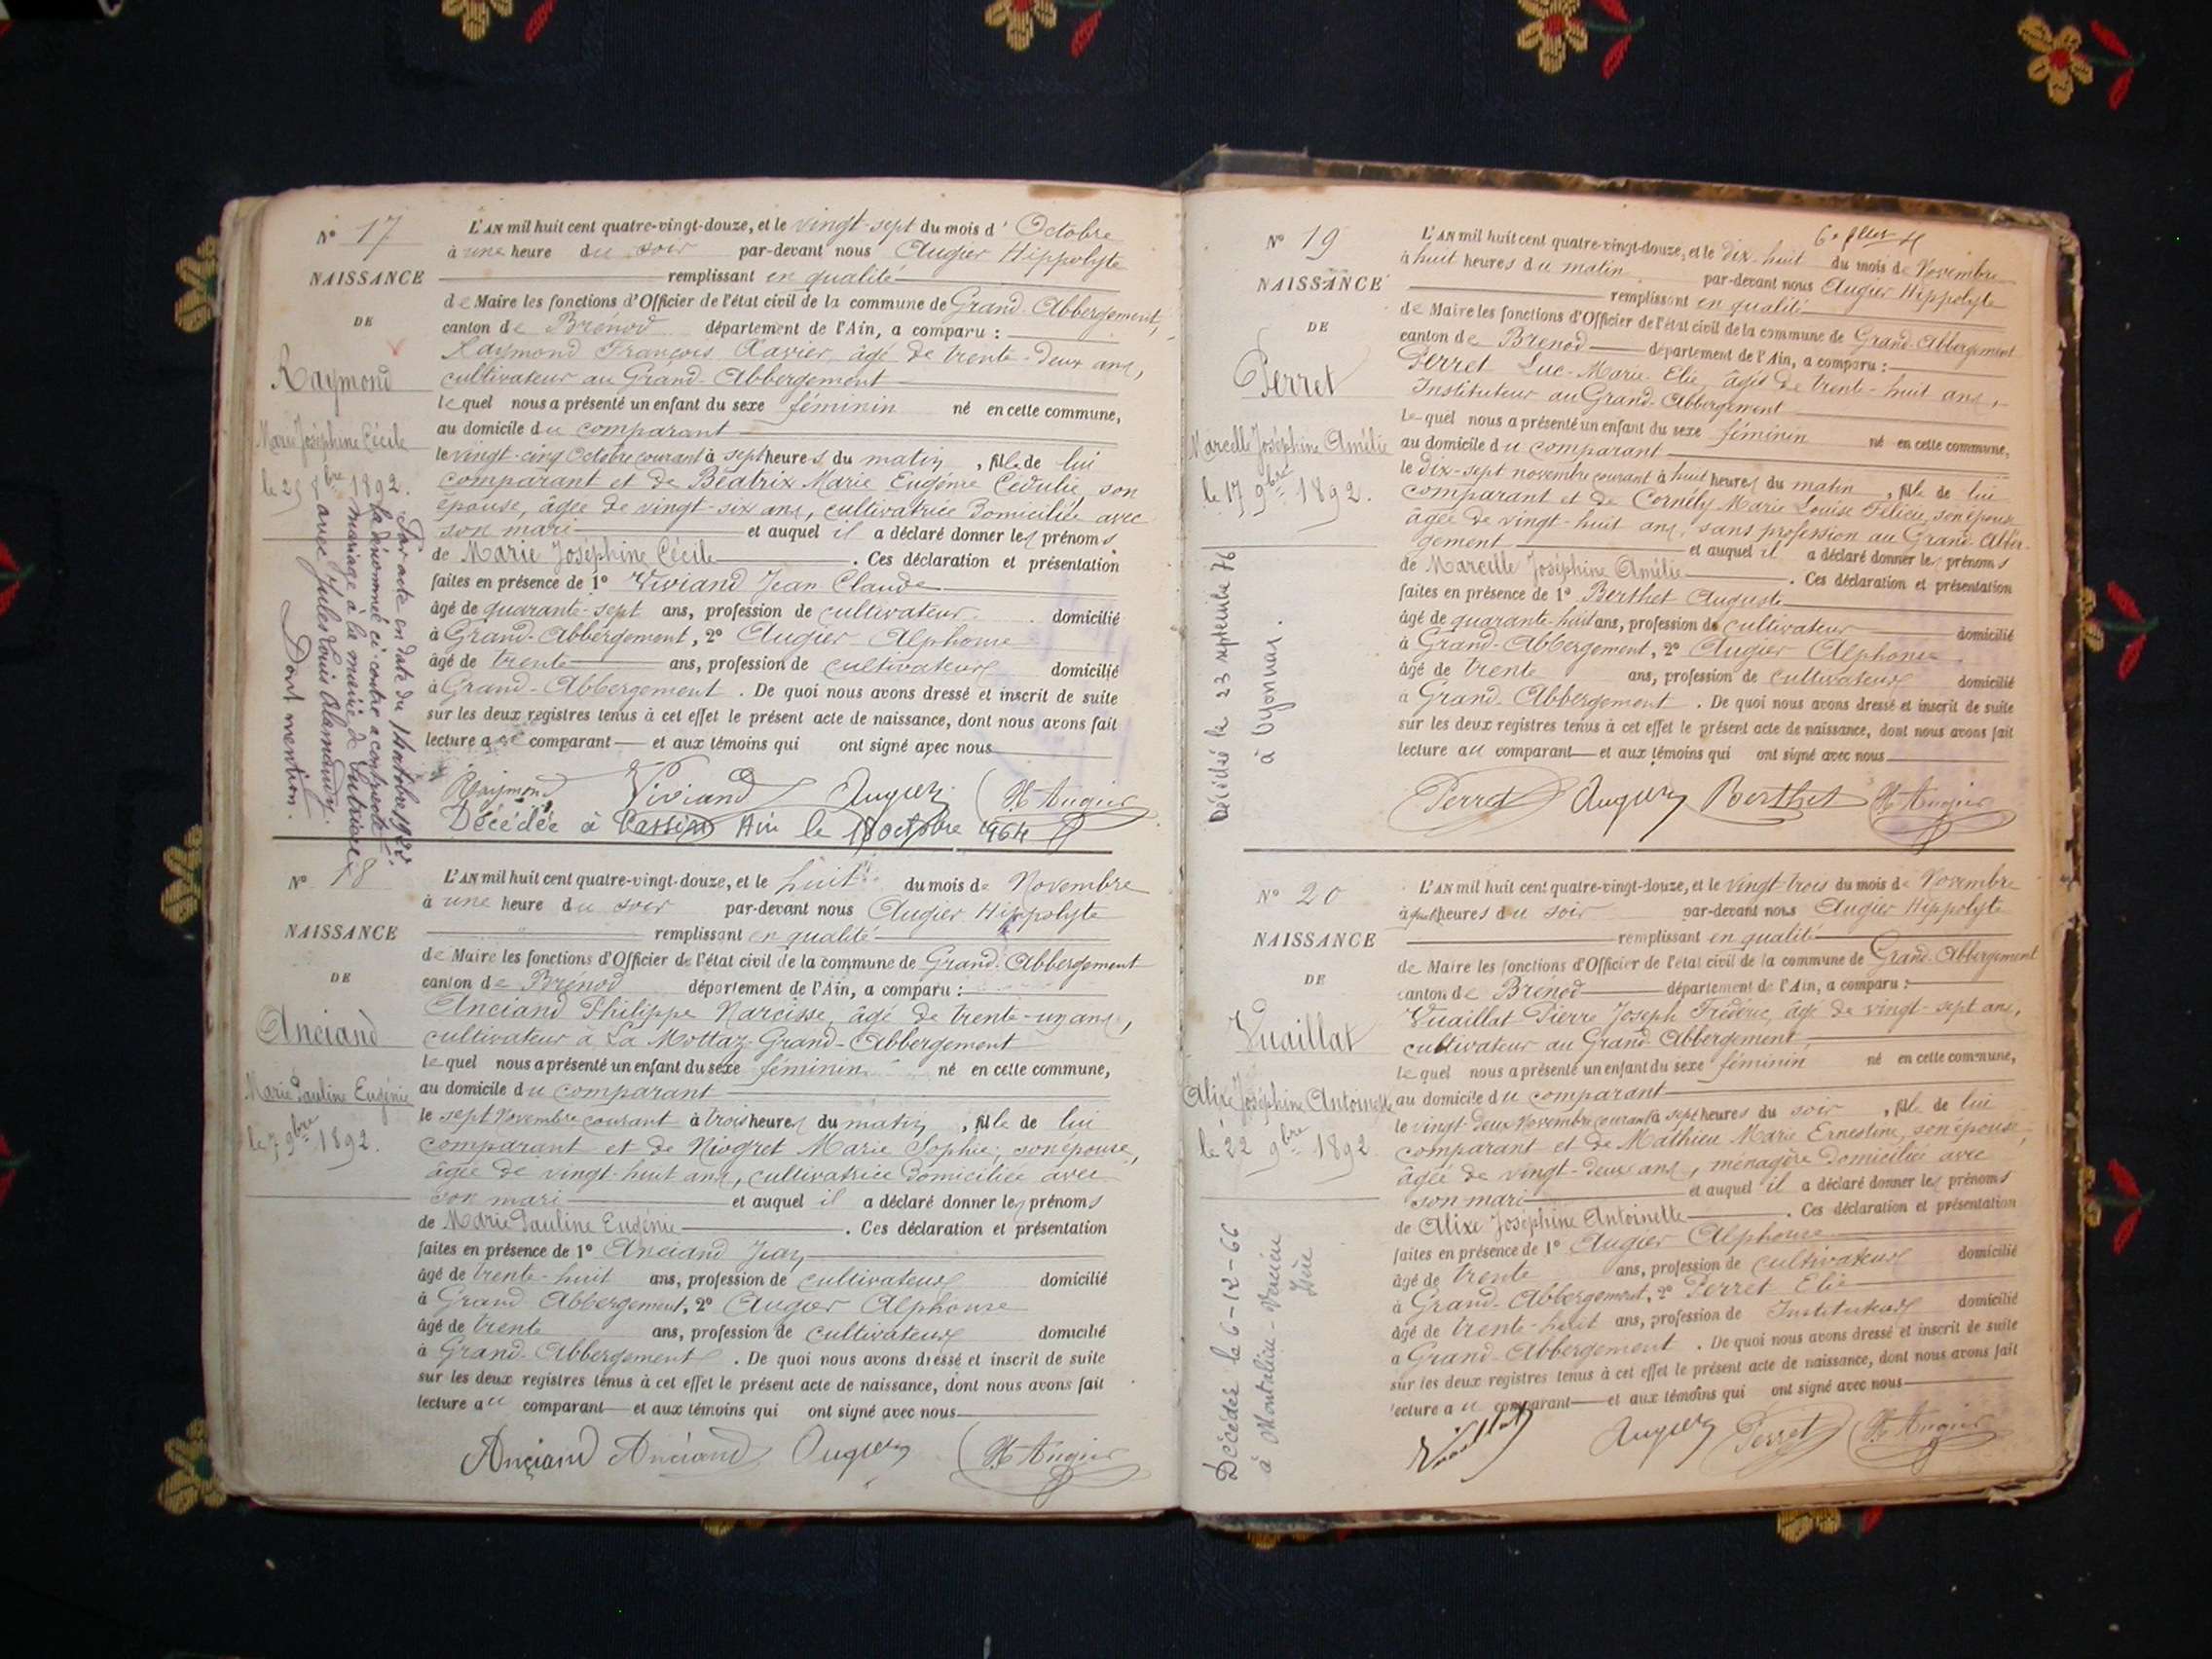 N° 17
NAISSANCE
DE
Raymond
Marie Joséphine Cécile
le 25 8bre 1892.
Par acte en date du 1 octobre
la dénommée ci-contre a contracté
mariage à la mairie de
avec Jules Louis
Dont mention.
L'AN mil huit cent quatre-vingt-douze, et le vingt-sept du mois d'Octobre
à une heure du soir par-devant nous Augier Hippolyte
remplissant en qualité
de Maire les fonctions d'Officier de l'état civil de la commune de Grand-Abbergement,
canton de Brénod département de l'Ain, a comparu :
Raymond François Xavier, âgé de trente-deux ans,
cultivateur au Grand-Abbergement
lequel nous a présenté un enfant du sexe féminin né en cette commune,
au domicile du comparant
le vingt-cinq Octobre courant à sept heures du matin, fille de lui
comparant et de Béatrix Marie Eugénie Cédulie, son
épouse, âgée de vingt-six ans, cultivatrice domiciliée avec
son mari et auquel il a déclaré donner les prénoms
de Marie Joséphine Cécile. Ces déclaration et présentation
faites en présence de 1° Viviand Jean Claude
âgé de quarante-sept ans, profession de cultivateur domicilié
à Grand-Abbergement, 2° Augier Alphonse
âgé de trente ans, profession de cultivateur domicilié
à Grand-Abbergement. De quoi nous avons dressé et inscrit de suite
sur les deux registres tenus à cet effet le présent acte de naissance, dont nous avons fait
lecture au comparant et aux témoins qui ont signé avec nous
Raymond Viviand Augier H. Augier
Décédée à Ain le 18 octobre 1964
N° 18
NAISSANCE
DE
Anciand
Marie Pauline Eugénie
le 7 9bre 1892.
L'AN mil huit cent quatre-vingt-douze, et le huit du mois de Novembre
à une heure du soir par-devant nous Augier Hippolyte
remplissant en qualité
de Maire les fonctions d'Officier de l'état civil de la commune de Grand-Abbergement
canton de Brénod département de l'Ain, a comparu :
Anciand Philippe Narcisse, âgé de trente-un ans,
cultivateur à La Mottaz-Grand-Abbergement
lequel nous a présenté un enfant du sexe féminin né en cette commune,
au domicile du comparant
le sept Novembre courant à trois heures du matin, fille de lui
comparant et de Niogret Marie Sophie, son épouse,
âgée de vingt-huit ans, cultivatrice domiciliée avec
son mari et auquel il a déclaré donner les prénoms
de Marie Pauline Eugénie. Ces déclaration et présentation
faites en présence de 1° Anciand Jean
âgé de trente-huit ans, profession de cultivateur domicilié
à Grand-Abbergement, 2° Augier Alphonse
âgé de trente ans, profession de cultivateur domicilié
à Grand-Abbergement. De quoi nous avons dressé et inscrit de suite
sur les deux registres tenus à cet effet le présent acte de naissance, dont nous avons fait
lecture au comparant et aux témoins qui ont signé avec nous
Anciand Anciand Augier H. Augier
N° 19
NAISSANCE
DE
Perret
Marcelle Joséphine Amélie
le 17 9bre 1892.
Décédée le 23 septembre 76
à Oyonnax.
L'AN mil huit cent quatre-vingt-douze, et le dix-huit du mois de Novembre
à huit heures du matin par-devant nous Augier Hippolyte
remplissant en qualité
de Maire les fonctions d'Officier de l'état civil de la commune de Grand-Abbergement
canton de Brenod département de l'Ain, a comparu :
Perret Luc-Marie-Elie, âgés de trente-huit ans,
Instituteur au Grand-Abbergement
lequel nous a présenté un enfant du sexe féminin né en cette commune,
au domicile du comparant
le dix-sept novembre courant à huit heures du matin, fille de lui
comparant et de Cornély Marie Louise Félicie, son épouse
âgée de vingt-huit ans, sans profession au Grand-Abber-
gement et auquel il a déclaré donner les prénoms
de Marcelle Joséphine Amélie. Ces déclaration et présentation
faites en présence de 1° Berthet Auguste
âgé de quarante-huit ans, profession de cultivateur domicilié
à Grand-Abbergement, 2° Augier Alphonse
âgé de trente ans, profession de cultivateur domicilié
à Grand-Abbergement. De quoi nous avons dressé et inscrit de suite
sur les deux registres tenus à cet effet le présent acte de naissance, dont nous avons fait
lecture au comparant et aux témoins qui ont signé avec nous
Perret Augier Berthet H. Augier
N° 20
NAISSANCE
DE
Vuaillat
Alixe Joséphine Antoinette
le 22 9bre 1892
Décédée le 6-12-66
à Montalieu-Vercieu
Isère
L'AN mil huit cent quatre-vingt-douze, et le vingt-trois du mois de Novembre
à heures du soir par-devant nous Augier Hippolyte
remplissant en qualité
de Maire les fonctions d'Officier de l'état civil de la commune de Grand-Abbergement
canton de Brenod département de l'Ain, a comparu :
Vuaillat Pierre Joseph Frédéric, âgé de vingt-sept ans,
cultivateur au Grand-Abbergement,
lequel nous a présenté un enfant du sexe féminin né en cette commune,
au domicile du comparant
le vingt-deux Novembre courant à sept heures du soir, fille de lui
comparant et de Mathieu Marie Ernestine, son épouse,
âgée de vingt-deux ans, ménagère domiciliée avec
son mari et auquel il a déclaré donner les prénoms
de Alixe Joséphine Antoinette. Ces déclaration et présentation
faites en présence de 1° Augier Alphonse
âgé de trente ans, profession de cultivateur domicilié
à Grand-Abbergement, 2° Perret Elie
âgé de trente-huit ans, profession de Instituteur domicilié
à Grand-Abbergement. De quoi nous avons dressé et inscrit de suite
sur les deux registres tenus à cet effet le présent acte de naissance, dont nous avons fait
lecture au comparant et aux témoins qui ont signé avec nous
Vuaillat Augier Perret H. Augier